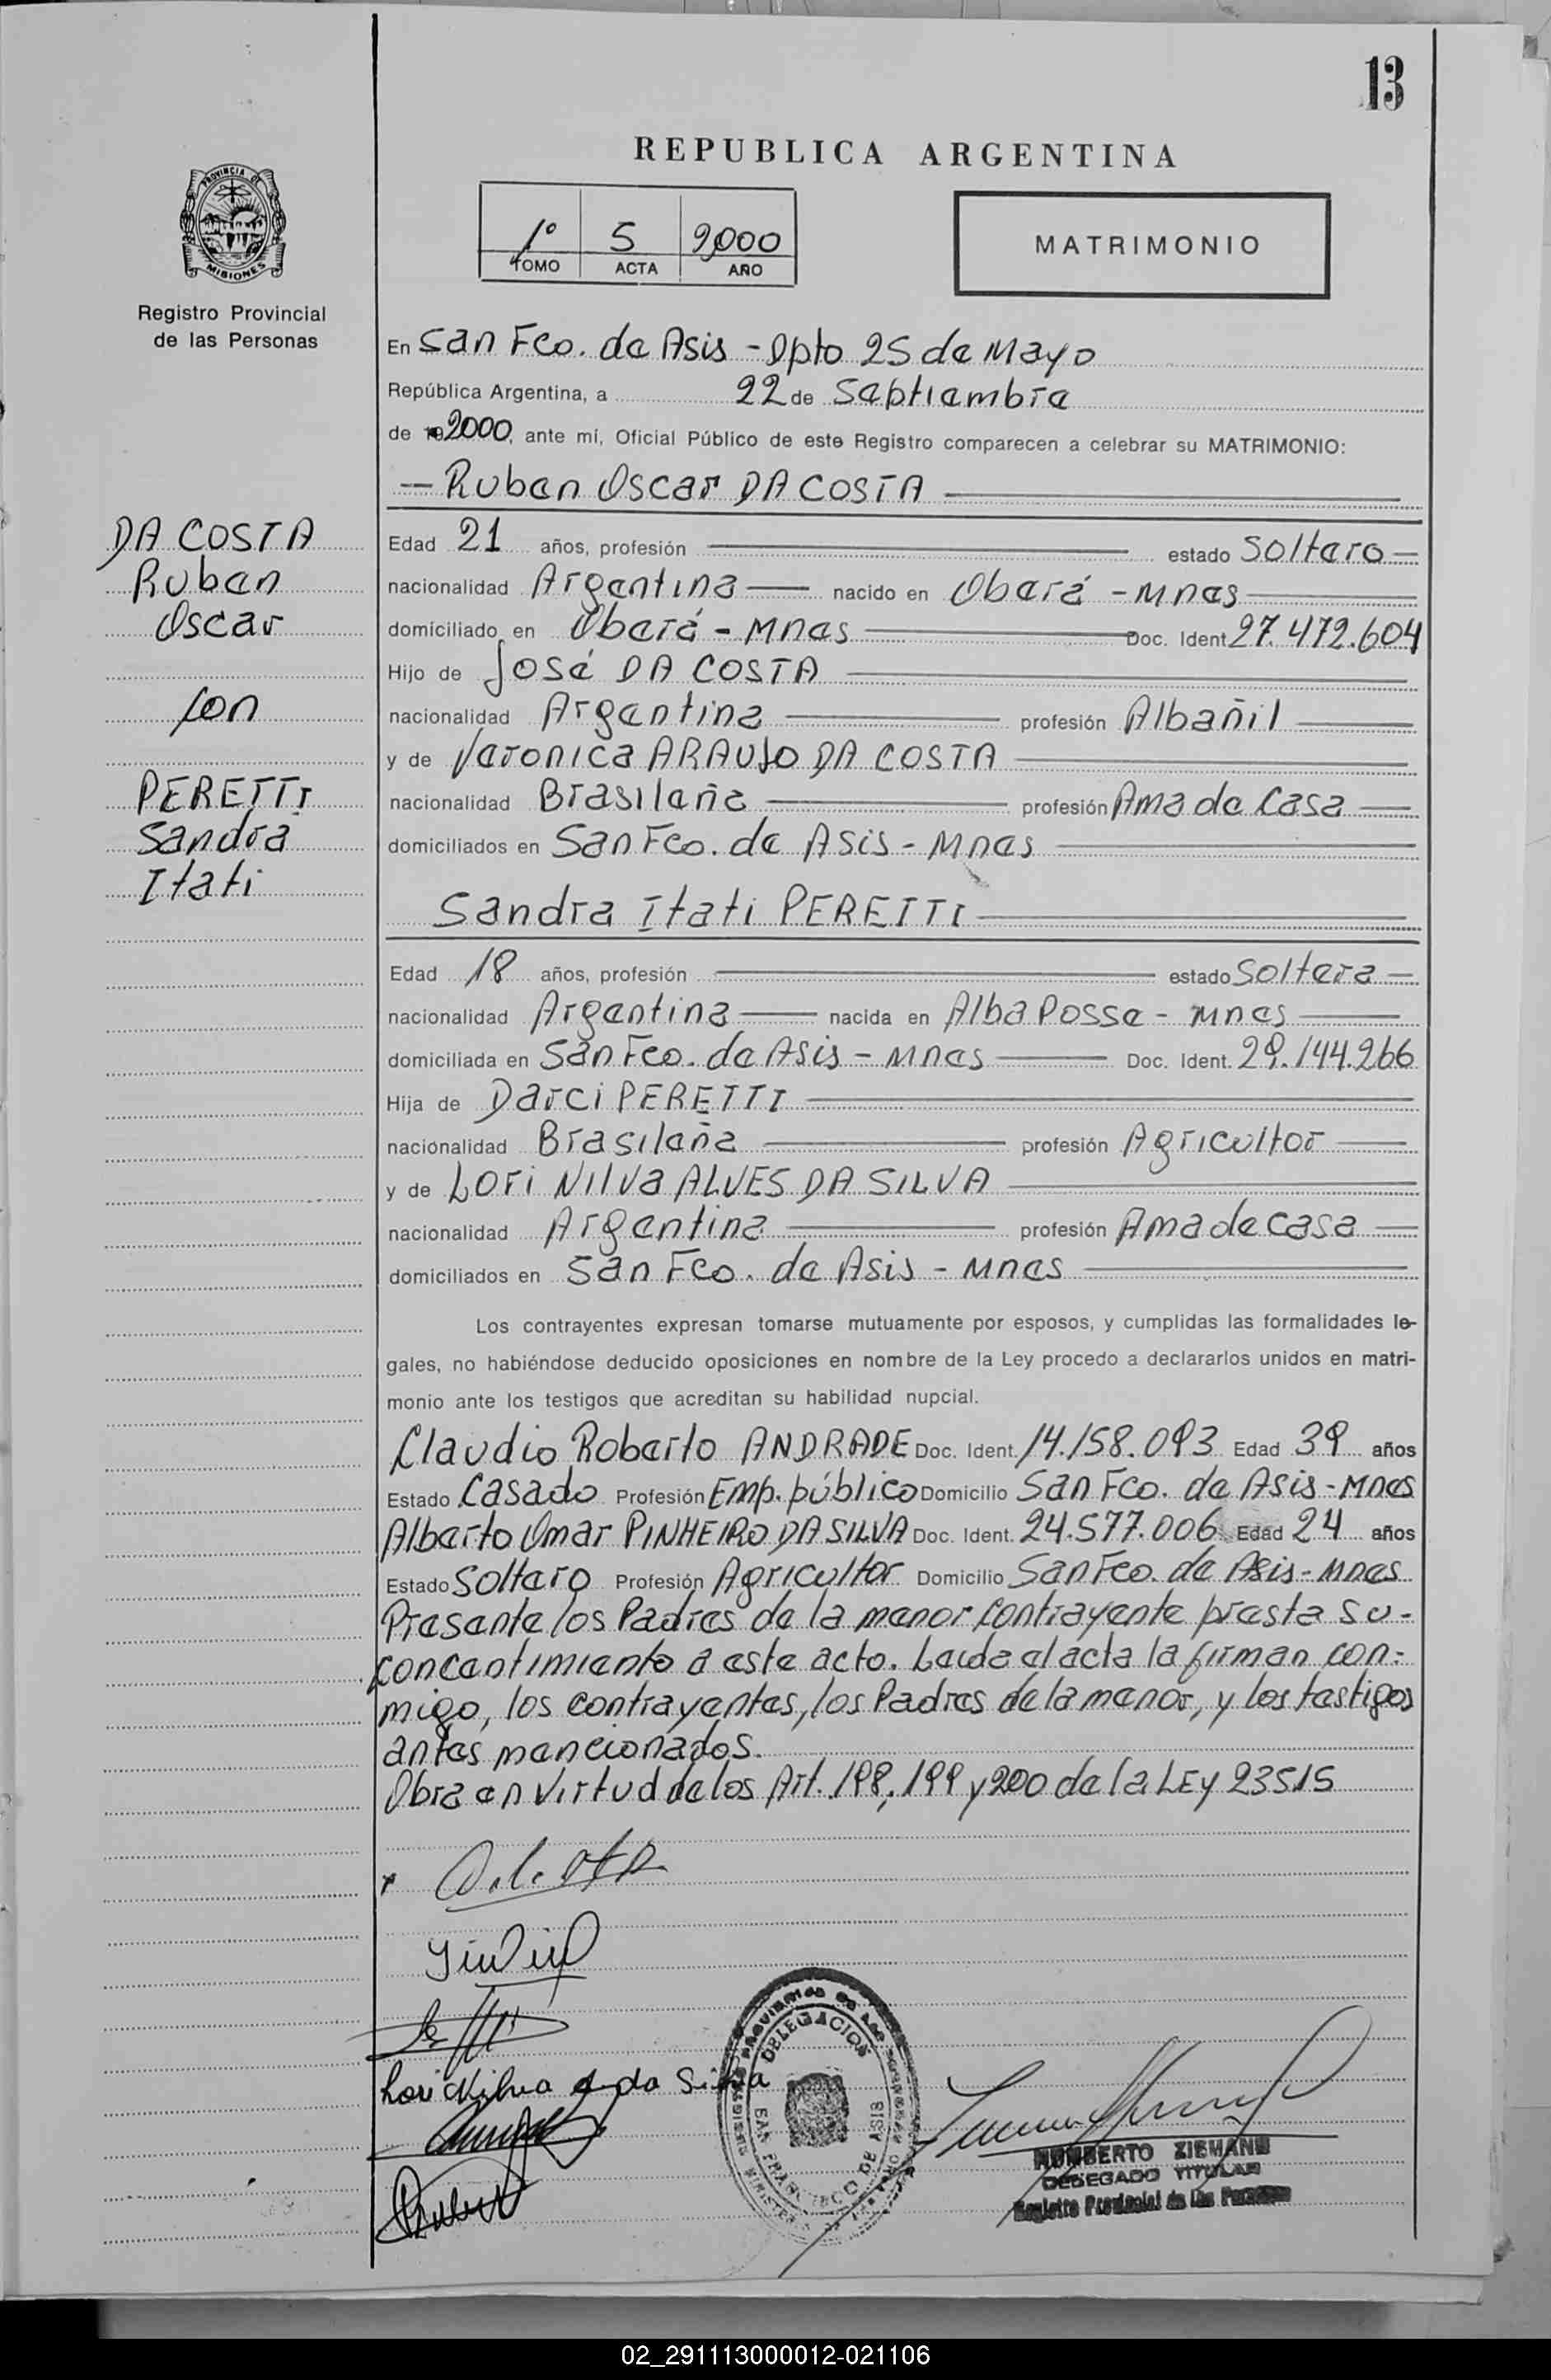 13
REPUBLICA ARGENTINA
PROVINCIA DE
MISIONES
Registro Provincial
de las Personas
1º 5 2000
TOMO ACTA AÑO
MATRIMONIO
En San Fco. de Asis - Dpto 25 de Mayo
República Argentina, a 22 de Septiembre
de 19 2000, ante mí, Oficial Público de este Registro comparecen a celebrar su MATRIMONIO:
— Ruben Oscar DA COSTA
DA COSTA
Ruben
Oscar
con
PERETTI
Sandra
Itati
Edad 21 años, profesión — estado Soltero
nacionalidad Argentina — nacido en Oberá - Mnes
domiciliado en Oberá - Mnes — Doc. Ident 27.472.604
Hijo de José DA COSTA
nacionalidad Argentina — profesión Albañil
y de Veronica ARAUJO DA COSTA
nacionalidad Brasileña — profesión Ama de Casa
domiciliados en San Fco. de Asis - Mnes
Sandra Itati PERETTI
Edad 18 años, profesión — estado Soltera
nacionalidad Argentina — nacida en Alba Posse - Mnes
domiciliada en San Fco. de Asis - Mnes — Doc. Ident. 29.144.266
Hija de Darci PERETTI
nacionalidad Brasileña — profesión Agricultor
y de Lori Nilva ALVES DA SILVA
nacionalidad Argentina — profesión Ama de casa
domiciliados en San Fco. de Asis - Mnes
Los contrayentes expresan tomarse mutuamente por esposos, y cumplidas las formalidades le-
gales, no habiéndose deducido oposiciones en nombre de la Ley procedo a declararlos unidos en matri-
monio ante los testigos que acreditan su habilidad nupcial.
Claudio Roberto ANDRADE Doc. Ident. 14.158.093 Edad 39 años
Estado Casado Profesión Emp. público Domicilio San Fco. de Asis - Mnes
Alberto Omar PINHEIRO DA SILVA Doc. Ident. 24.577.006 Edad 24 años
Estado Soltero Profesión Agricultor Domicilio San Fco. de Asis - Mnes
Presente los Padres de la menor contrayente presta su-
concentimiento a este acto. Leida el acta la firman con-
migo, los contrayentes, los Padres de la menor, y los testigos
antes mencionados.
Obra en virtud de los Art. 198, 199 y 200 de la LEY 23515
Lori Nilva A da Silva
DELEGACION
SAN FRANCISCO DE ASIS
HUMBERTO ZIEMANN
DELEGADO TITULAR
Registro Provincial de las Personas
02_291113000012-021106